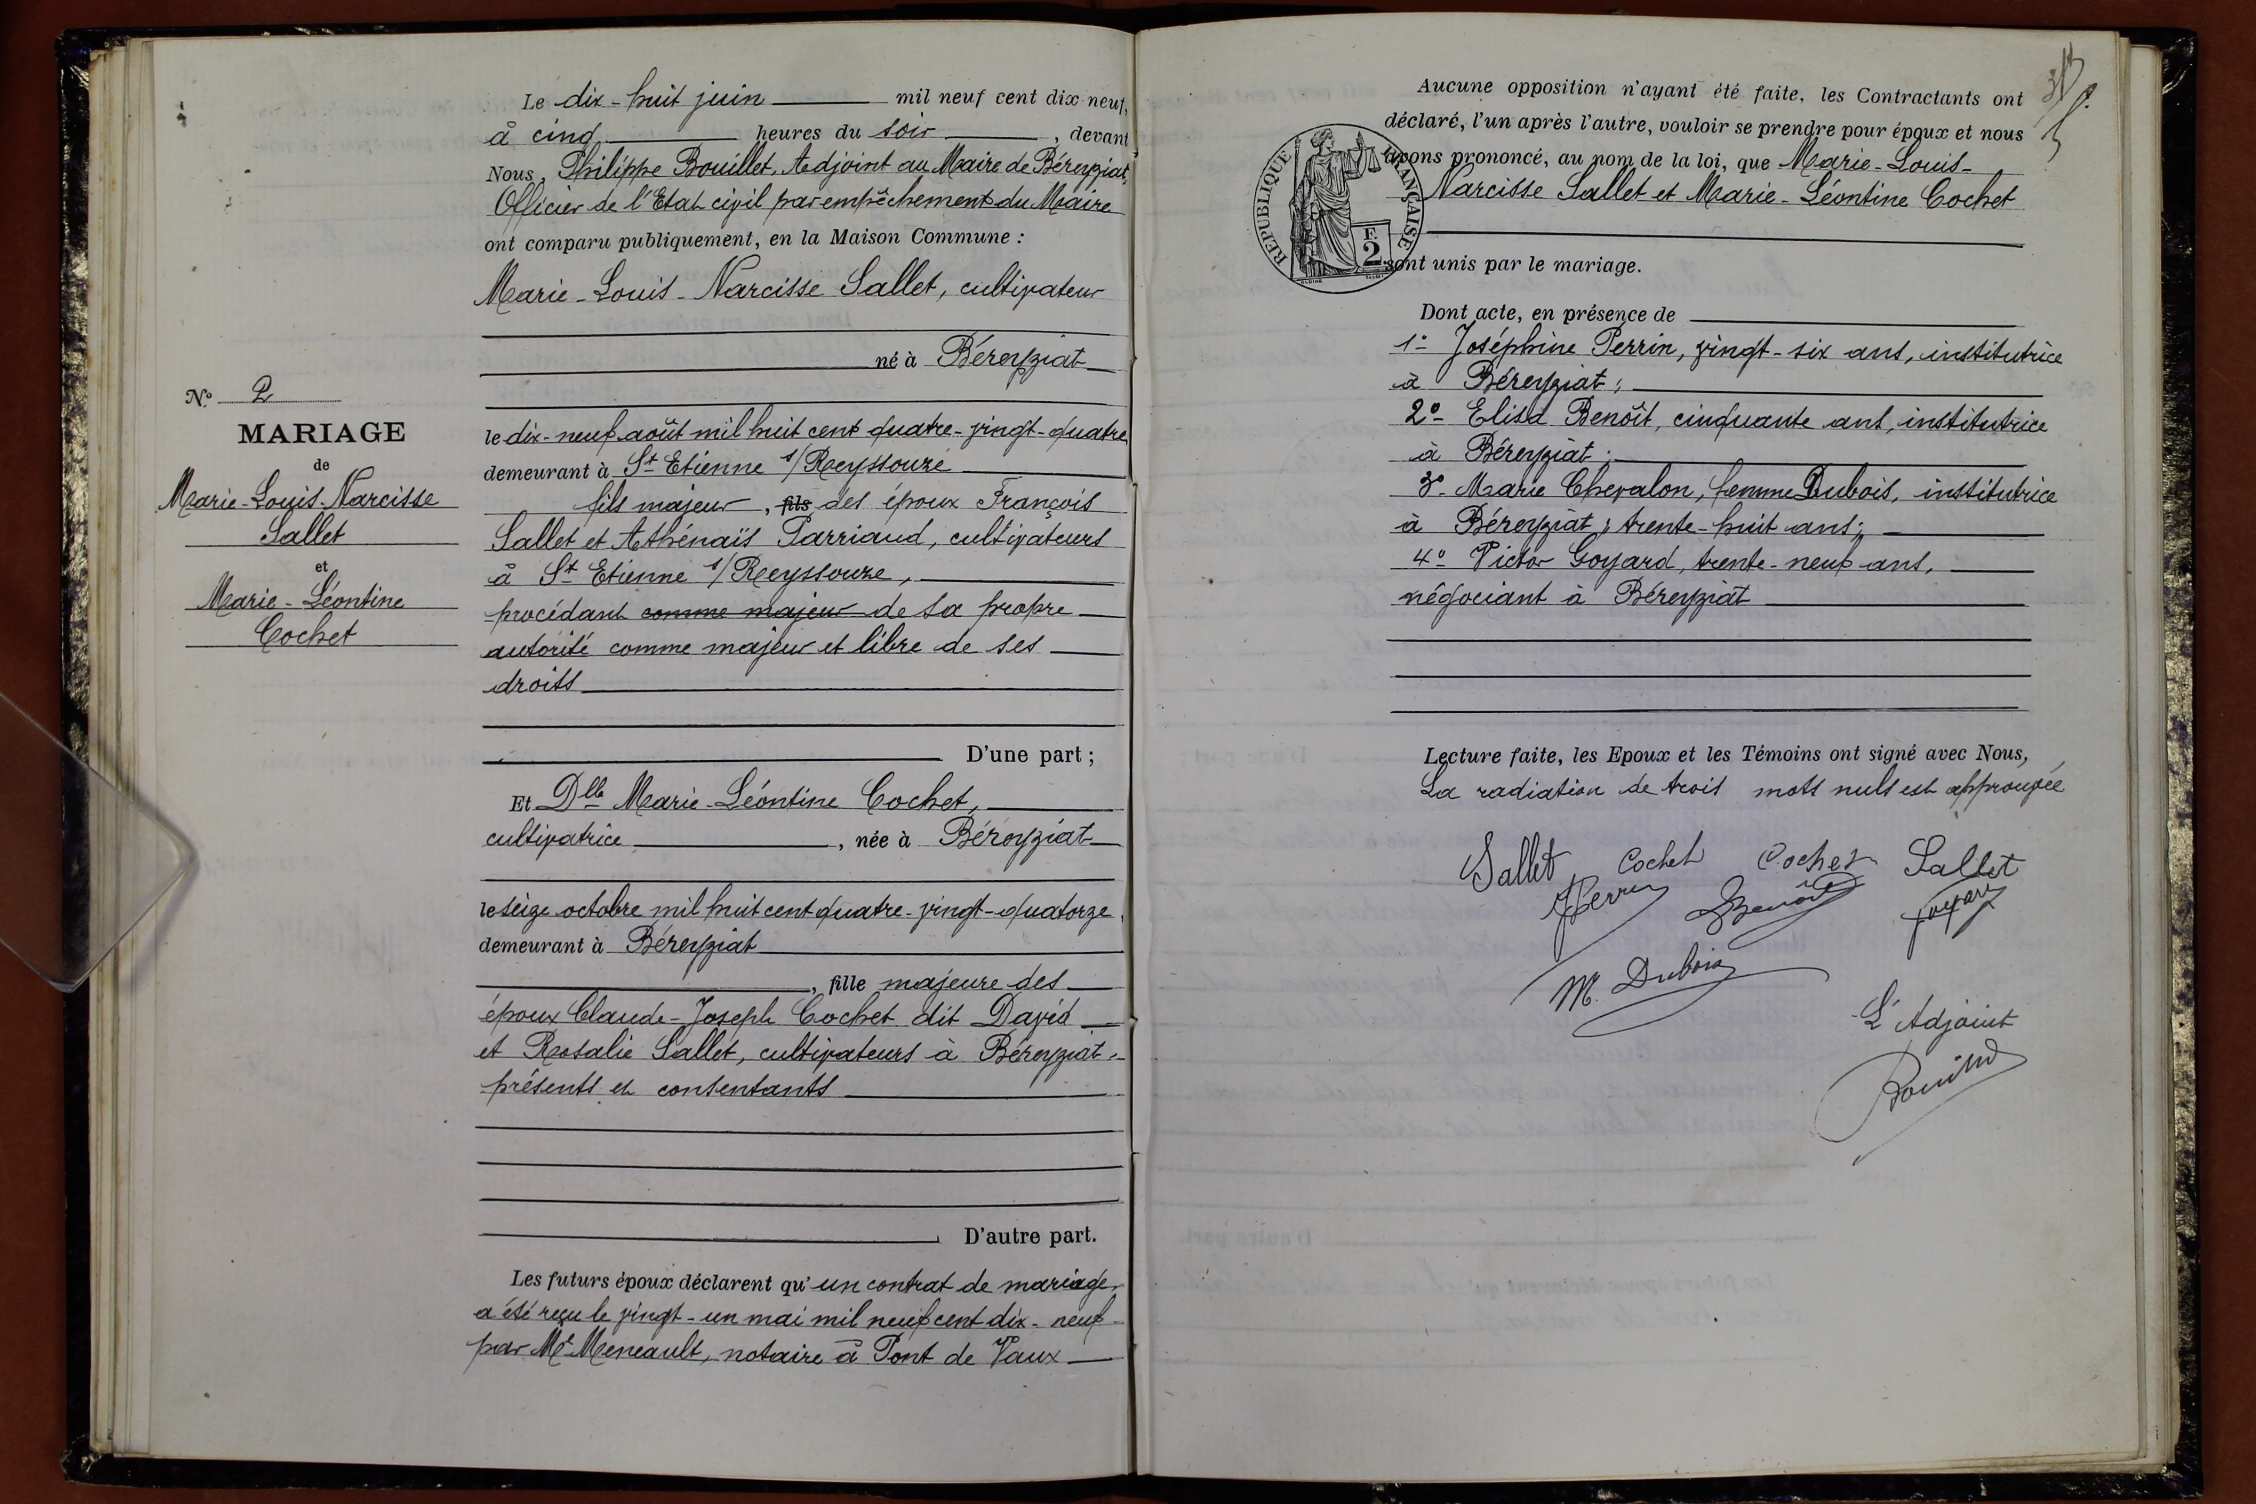 Le dix-huit juin mil neuf cent dix neuf,
à cinq heures du soir, devant
Nous, Philippe Bouillet, Adjoint au Maire de Béreyziat,
Officier de l'Etat civil par empêchement du Maire
ont comparu publiquement, en la Maison Commune :
Marie-Louis-Narcisse Sallet, cultivateur
né à Béreyziat
le dix-neuf août mil huit cent quatre-vingt-quatre
demeurant à St Etienne s/Reyssouze
fils majeur, fils des époux François
Sallet et Athénaïs Parriaud, cultivateurs
à St Etienne s/Reyssouze,
procédant comme majeur de sa propre
autorité comme majeur et libre de ses
droits
D'une part ;
Et Dlle Marie-Léontine Cochet,
cultivatrice, née à Béreyziat
le seize octobre mil huit cent quatre-vingt-quatorze,
demeurant à Béreyziat
, fille majeure des
époux Claude-Joseph Cochet dit David
et Rosalie Sallet, cultivateurs à Béreyziat,
présents et consentants
D'autre part.
Les futurs époux déclarent qu'un contrat de mariage
a été reçu le vingt-un mai mil neuf cent dix-neuf
par Me Meneault, notaire à Pont de Vaux
No 2
MARIAGE
de
Marie-Louis-Narcisse
Sallet
et
Marie-Léontine
Cochet
Aucune opposition n'ayant été faite, les Contractants ont
déclaré, l'un après l'autre, vouloir se prendre pour époux et nous
avons prononcé, au nom de la loi, que Marie-Louis-
Narcisse Sallet et Marie-Léontine Cochet
sont unis par le mariage.
RÉPUBLIQUE FRANÇAISE
F.
2
Dont acte, en présence de
1° Joséphine Perrin, vingt-six ans, institutrice
à Béreyziat ;
2° Elisa Benoît, cinquante ans, institutrice
à Béreyziat ;
3° Marie Chevalon, femme Dubois, institutrice
à Béreyziat, trente-huit ans ;
4° Victor Goyard, trente-neuf ans,
négociant à Béreyziat
Lecture faite, les Epoux et les Témoins ont signé avec Nous,
La radiation de trois mots nuls est approuvée
Sallet Cochet Cochet Sallet
JPerrin EBenoît Goyard
M. Dubois
L'Adjoint
Bouillet